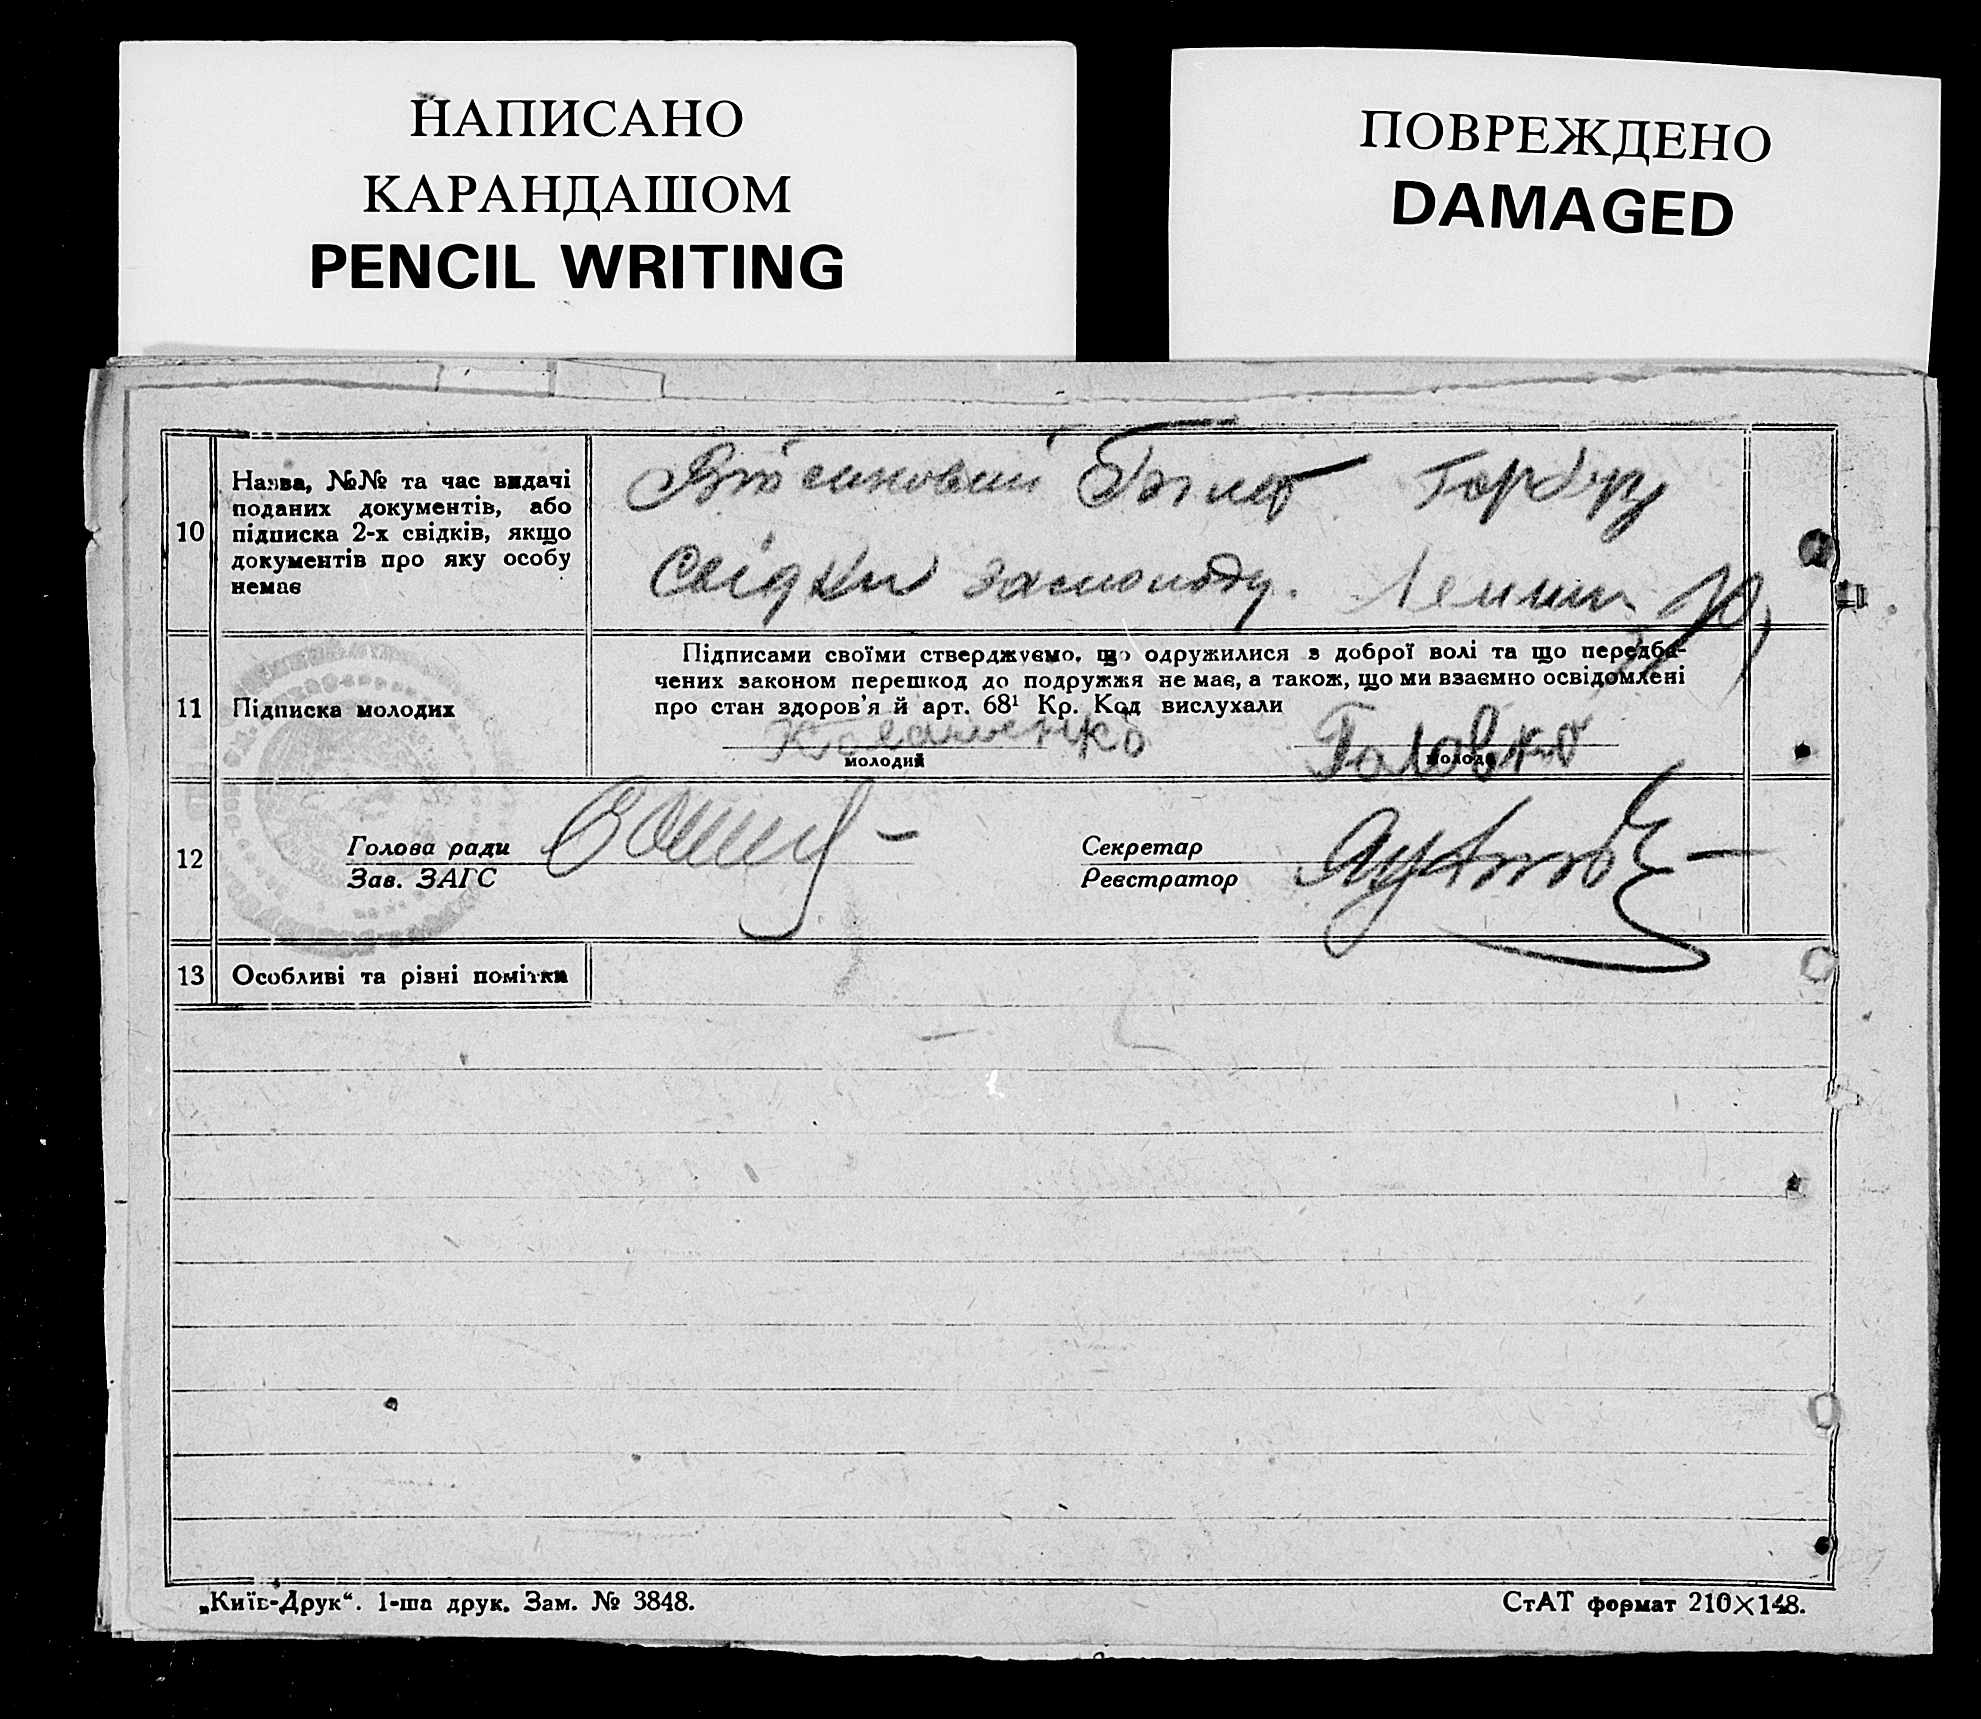 НАПИСАНО
КАРАНДАШОМ
PENCIL WRITING
ПОВРЕЖДЕНО
DAMAGED
10
Назва, №№ та час видачі
поданих документів, або
підписка 2-х свідків, якщо
документів про яку особу
немає
Військовий білет
Свідки
11
Підписка молодих
Підписами своїми стверджуємо, що одружилися з доброї волі та що передба-
чених законом перешкод до подружжя не має, а також, що ми взаємно освідомлені
про стан здоров'я й арт. 68¹ Кр. Код вислухали
Головко
молодий
молода
12
Голова ради
Зав. ЗАГС
Секретар
Реєстратор
13
Особливі та рівні помітки
„Київ-Друк“. 1-ша друк. Зам. № 3848.
СтАТ формат 210×148.